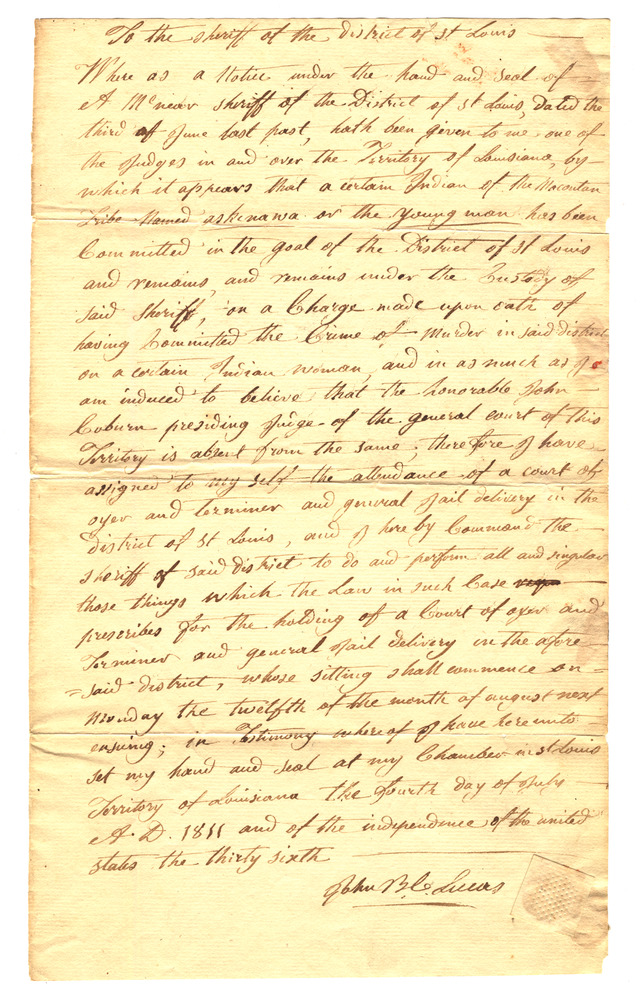 To the sheriff of the District of St Louis
Where as a Notice under the hand and seal of
A McNair sheriff of the District of St Louis, dated the
third of June last past, hath been given to me one of
the Judges in and over the Territory of Louisiana, by
which it appears that a certain Indian of the Macontan
Tribe Named askinawa or the young man has been
Committed in the goal of the District of St Louis
and remains, and remains under the Custody of
said Sheriff, on a Charge made upon oath of
having Committed the Crime of Murder in said district
on a certain Indian woman, and in as much as I
am induced to believe that the honorable John
Coburn presiding Judge of the general court of this
Territory is absent from the same; therefore I have
assigned to my self the attendance of a court of
oyer and terminer and general Jail delivery in the
District of St Louis, and I here by Command the
sheriff of said district to do and perform all and singular
those things which the Law in such Case
prescribes for the holding of a Court of oyer and
Terminer and general Jail delivery in the afore
=said district, whose sitting shall commence on
monday the twelfth of the month of august next
ensuing; in Testimony where of I have here unto
set my hand and seal at my Chamber in St Louis
Territory of Louisiana the fourth day of July
A. D. 1811 and of the independence of the united
states the thirty sixth
John B. C. Lucas